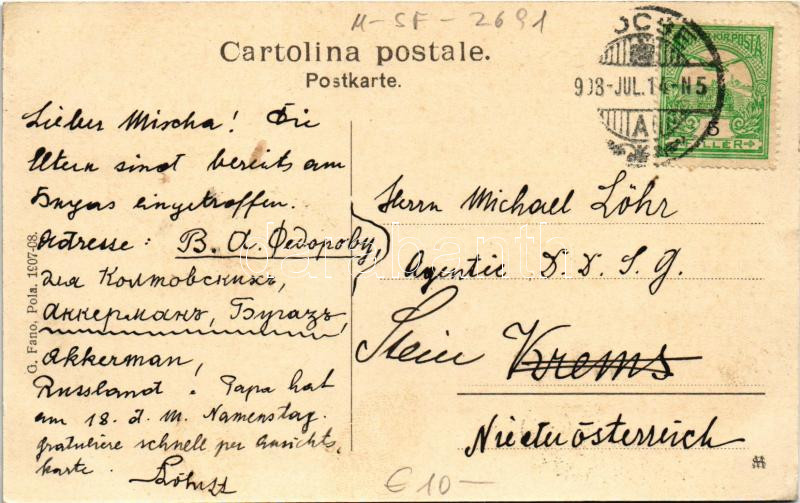 M-SF-2691
Cartolina postale.
Postkarte.
OCSE
908-JUL.14-N5
A
KIR. POSTA
5
LLER
Lieber Mischa! Die
Eltern sind bereits am
Bugas eingetroffen.
Adresse: В. А. Федорову,
для Колтовскихъ,
Аккерманъ, Бугазъ,
Akkerman,
Russland. Papa hat
am 18. d. M. Namenstag.
gratuliere schnell per Ansichts-
karte.
Herrn Michael Löhr
Agentie D. D. S. G.
Stein Krems
Niederösterreich
G. Fano, Pola. 1907-08.
€10-